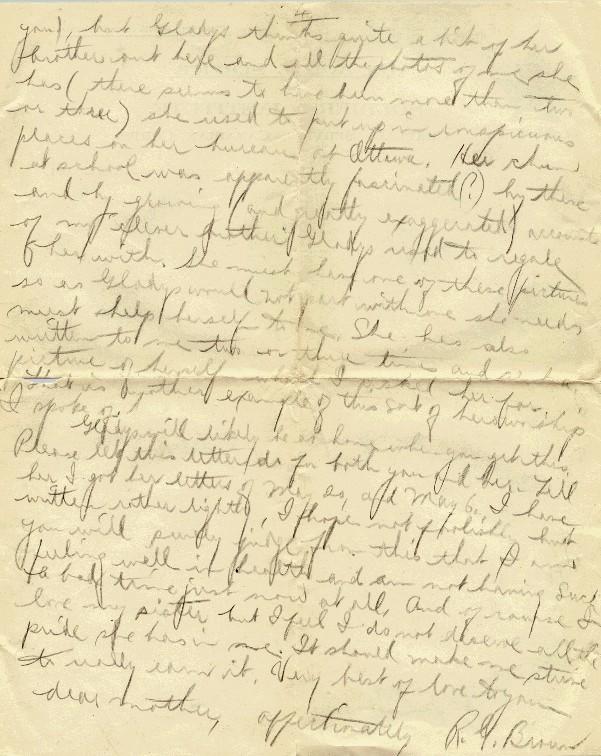 4
you), but Gladys thinks quite a bit of her
brother out here and all the photos of me she
has (there seems to have been more than two
or three) she used to put up in conspicuous
places on her bureau at Ottawa. Her chum
at school was apparently fascinated (?) by these
and by glowing (and greatly exaggerated) accounts
of my "clever brother" Gladys used to regale
her with. She must have one of these pictures
so as Gladys would not part with one she needs
must help herself to one. She has also
written to me two or three times and
picture of herself which I asked her for.
This is another example of this sort of heroworship
I spoke of.
Gladys will likely be at home when you get this.
Please let this letter do for both you and her. Tell
her I got her letters of May 20, and May 6. I have
written rather lightly, I hope not foolishly but
you will surely judge from this that I am
feeling well in health and am not having such
a bad time just now at all. And of course I
love my sister but I feel I do not deserve all the
pride she has in me. It should make me strive
to really earn it. Very best of love to you
dear mother, affectionately R. G. Brown